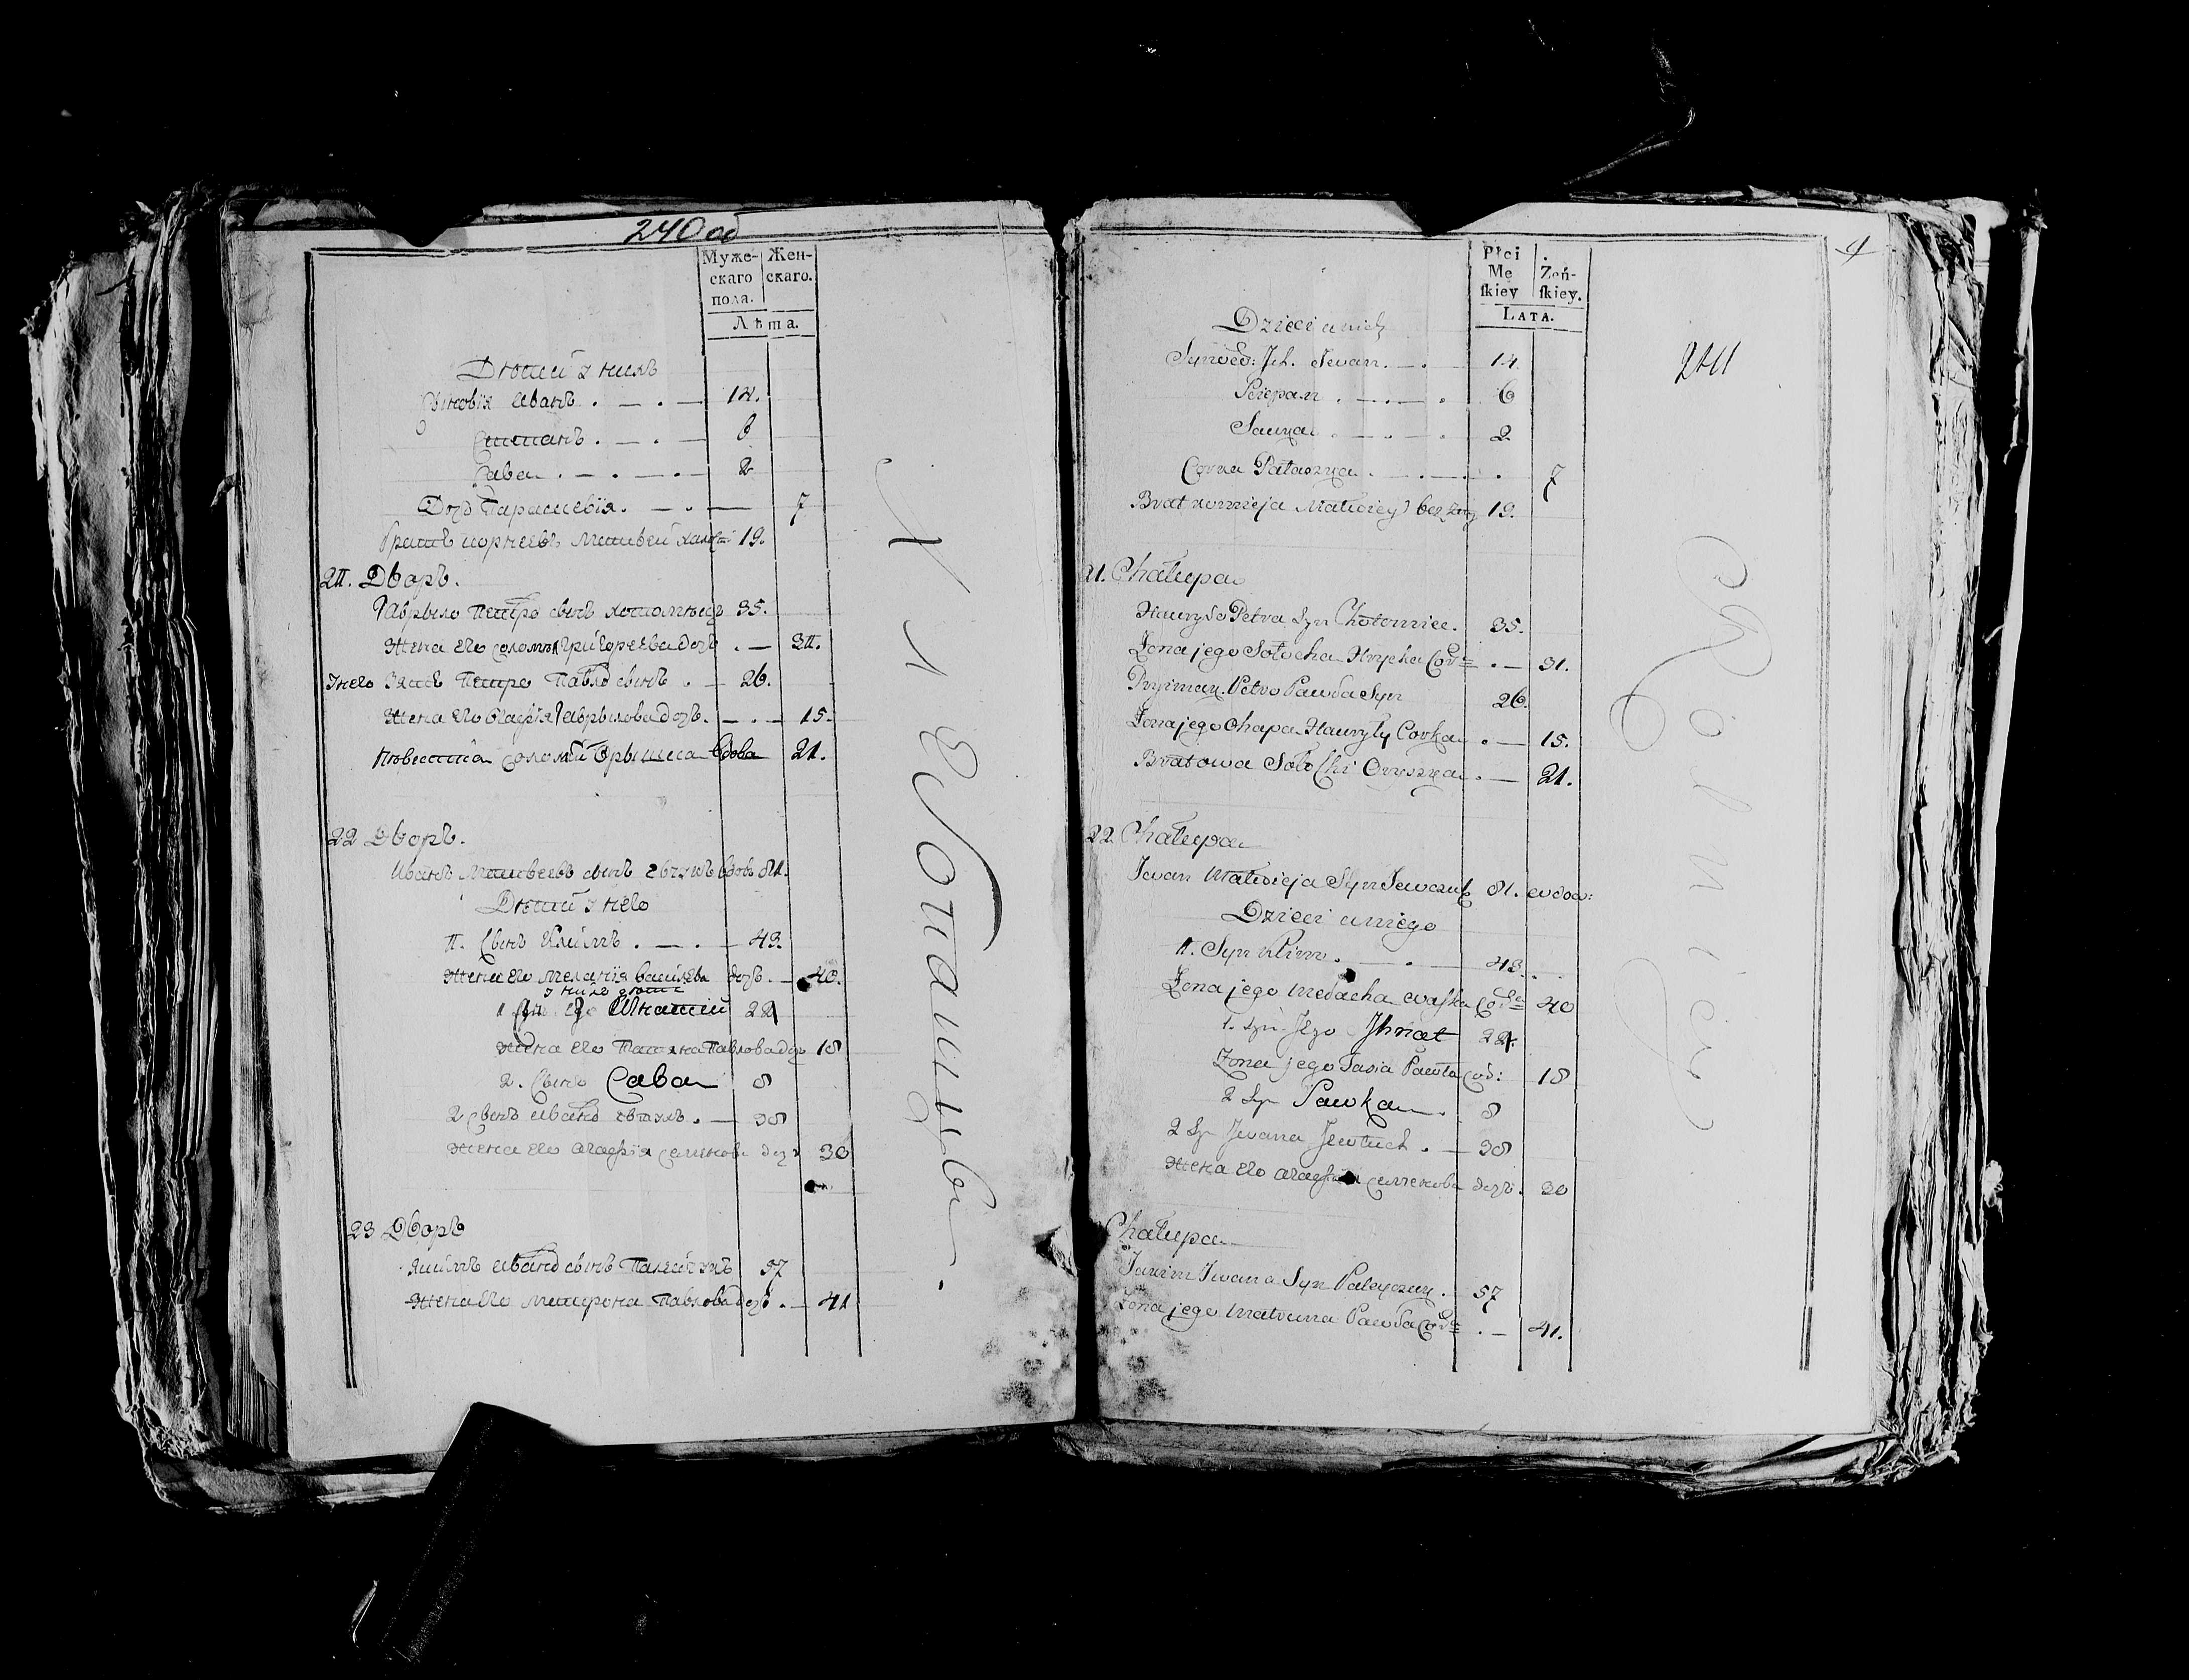 240 об
Муже- Жен-
скаго скаго.
пола.
Лѣта.
Дѣтей у нихъ
Сыновія Иванъ . — . — 14.
Степанъ . — . — 6
Сава . — . — . 2
Дочь Парасшевія . — . — 7
Братъ Корнеевъ Матвей холост: 19.
21. Дворъ.
Гаврыло Петра сынъ Хотомнецъ 35.
Жена Его Соломія Григорьева дочь . — 31.
У него Зять Петро Павла сынъ . — 26.
Жена его Агафія Гаврылова дочь . — . — 15.
Невестка Соломіи Орышка вдова 21.
22 Дворъ.
Иванъ Матвеевъ сынъ вдовъ 81.
Дѣтей у него
1. Сынъ Климъ . — . — 43.
Жена Его Меланія Василева дочь . — 40.
у нихъ дети
1 Сынъ Его Игнатій 22
Жена Его Татяна Павлова дочь 18
2. Сынъ Сава 8
2 Сынъ Ивана Евтухъ . — 38
Жена Его Агафія Семенова дочь 30
23 Дворъ
Якимъ Ивана сынъ Палейчукъ 57
Жена Его Матрона Павлова дочь . — 41
Хлебопашцы.
4
Płci
Mę Żeń-
skiey skiey.
Lata.
241
Dzieci u nich
Synów: Ich. Iwan . — . 14.
Stepan . — . — . 6
Sawka . — . — . 2
Corka Paraszka . — . — . 7
Brat Kornieja Matwiey bez żony 19.
21. Chałupa
Hawryło Petra Syn Chotomiec. 35.
Żona jego Sołocha Hryćka Córka . — 31.
Pryimak Petro Pawła Syn 26.
Żona jego Ohapa Hawryły Corka . — 15.
Bratowa Sołochi Oryszka . — 21.
22. Chałupa
Iwan Matwieja Syn Iewczuk 81. wdow:
Dzieci u niego
1. Syn Klim . — . 43.
Żona jego Melacha Waśka Córka 40
1. Syn Jego Ihnat 22
Żona jego Tasia Pawła Cor: 18
2 Syn Sawka . 8
2 Syn Iwana Jewtuch . — 38
Жена Его Агафія Семенова дочь . 30
Chałupa
Jakim Iwana Syn Paleyczuk . 57
Żona jego Matruna Pawła Córka . — 41.
Rolnicy